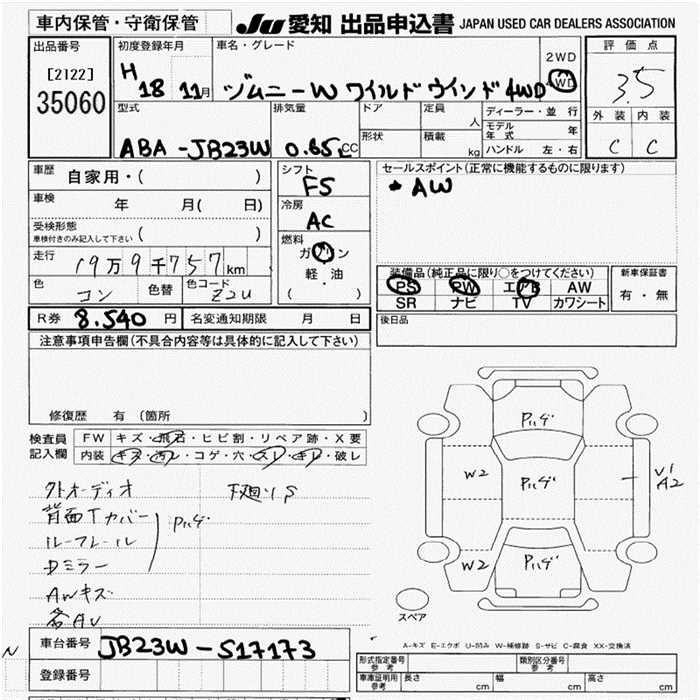 車内保管・守衛保管 JU 愛知 出品申込書 JAPAN USED CAR DEALERS ASSOCIATION
出品番号
[2122]
35060
初度登録年月
H 18 11月
車名・グレード
ジムニーW ワイルドウインド 4WD
2WD
4WD
評価点
3.5
外装 内装
C C
型式
ABA-JB23W
排気量
0.65L CC
ドア
形状
定員 人
積載 kg
ディーラー・並行
モデル年式 年
ハンドル 左・右
車歴 自家用・( )
車検 年 月( 日)
受検形態
車検付きのみ記入して下さい ( )
走行 19万9千757km
色 コン 色替 色コード Z2U
シフト
F5
冷房
AC
燃料
ガソリン
軽・油
( )
セールスポイント(正常に機能するものに限ります)
* AW
装備品(純正品に限り○をつけてください)
PS PW エアB AW
SR ナビ TV カワシート
新車保証書
有・無
後日品
R券 8.540 円 名変通知期限 月 日
注意事項申告欄(不具合内容等は具体的に記入して下さい)
修復歴 有 (箇所 )
検査員 記入欄
FW キズ・飛石・ヒビ割・リペア跡・X要
内装 キズ・汚レ・コゲ・穴・スレ・キレ・破レ
外オーディオ 下廻りS
背面Tカバー
ルーフレール
Dミラー
Pハゲ
AWキズ
各AU
Pハゲ
W2 Pハゲ
V1
A2
W2 Pハゲ
スペア
A-キズ E-エクボ U-凹み W-補修跡 S-サビ C-腐食 XX-交換済
N
車台番号 JB23W-517173
登録番号
形式指定番号 参考 類別区分番号 参考
車庫証明用 参考 長さ cm 幅 cm 高さ cm